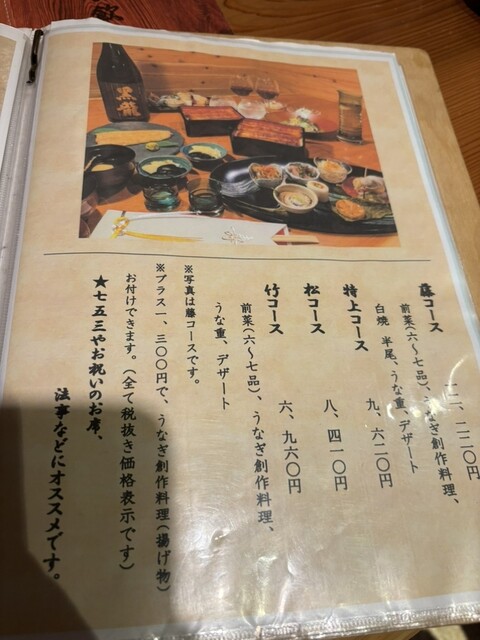 黒龍
藤コース
一二、二二〇円
前菜(六〜七品)、うなぎ創作料理、
白焼 半尾、うな重、デザート
特上コース
九、六二〇円
松コース
八、四一〇円
竹コース
六、九六〇円
前菜(六〜七品)、うなぎ創作料理、
うな重、デザート
※写真は藤コースです。
※プラス一、三〇〇円で、うなぎ創作料理(揚げ物)
お付けできます。(全て税抜き価格表示です)
★七五三やお祝いのお席、
法事などにオススメです。